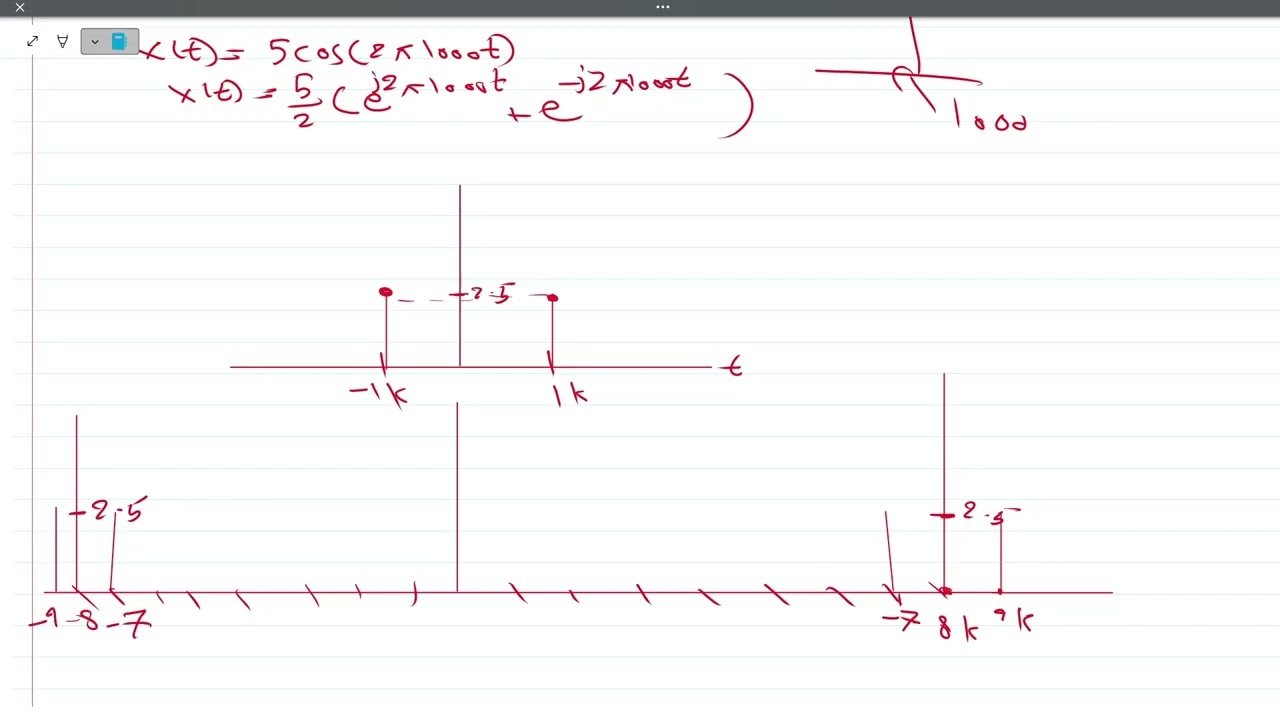 x(t) = 5cos(2π1000t)
x(t) = 5/2 (e^j2π1000t + e^-j2π1000t)
1000
2.5
-1k 1k t
2.5 2.5
-9 -8 -7 -7 8k 9k